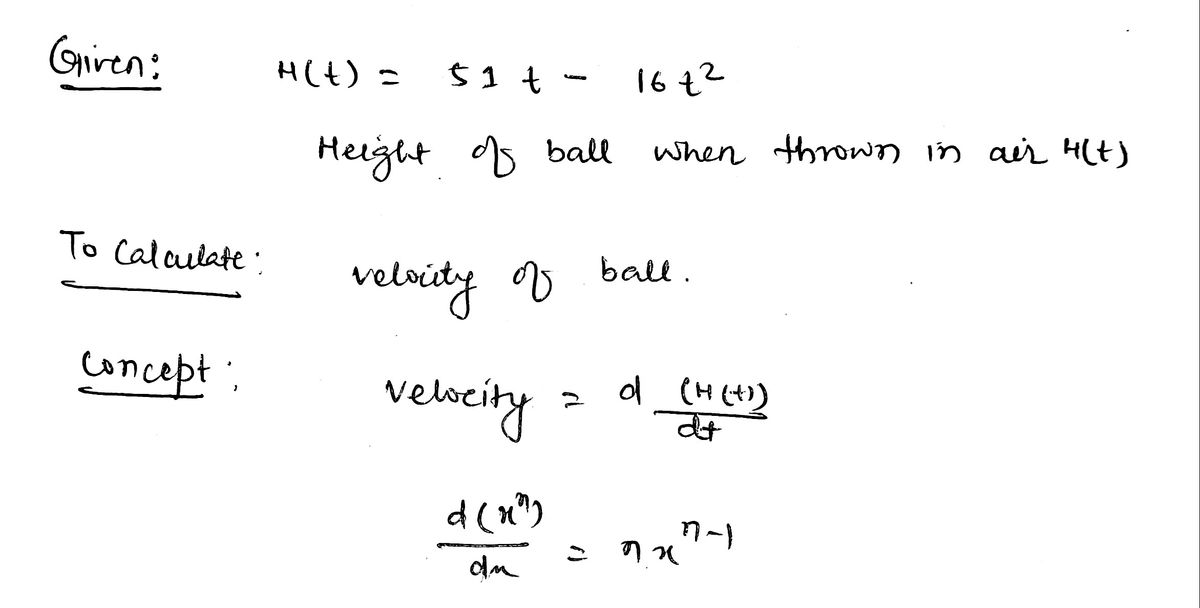 Given: H(t) = 51 t - 16 t²
Height of ball when thrown in air H(t)
To Calculate: velocity of ball.
Concept: velocity = d (H(t)) / dt
d(xⁿ) / dx = n xⁿ⁻¹